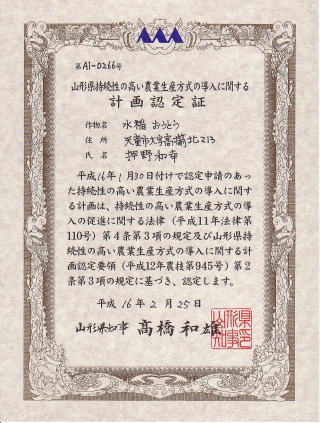 AAA
第A1-0266号
山形県持続性の高い農業生産方式の導入に関する
計画認定証
作物名 水稲 おうとう
住所 天童市大字高擶北2213
氏名 押野和幸
平成16年1月30日付けで認定申請のあっ
た持続性の高い農業生産方式の導入に関す
る計画は、持続性の高い農業生産方式の導
入の促進に関する法律（平成11年法律第
110号）第4条第3項の規定及び山形県持
続性の高い農業生産方式の導入に関する計
画認定要領（平成12年農技第945号）第2
条第3項の規定に基づき、認定します。
平成16年2月25日
山形県知事 高橋和雄
山形県知事印